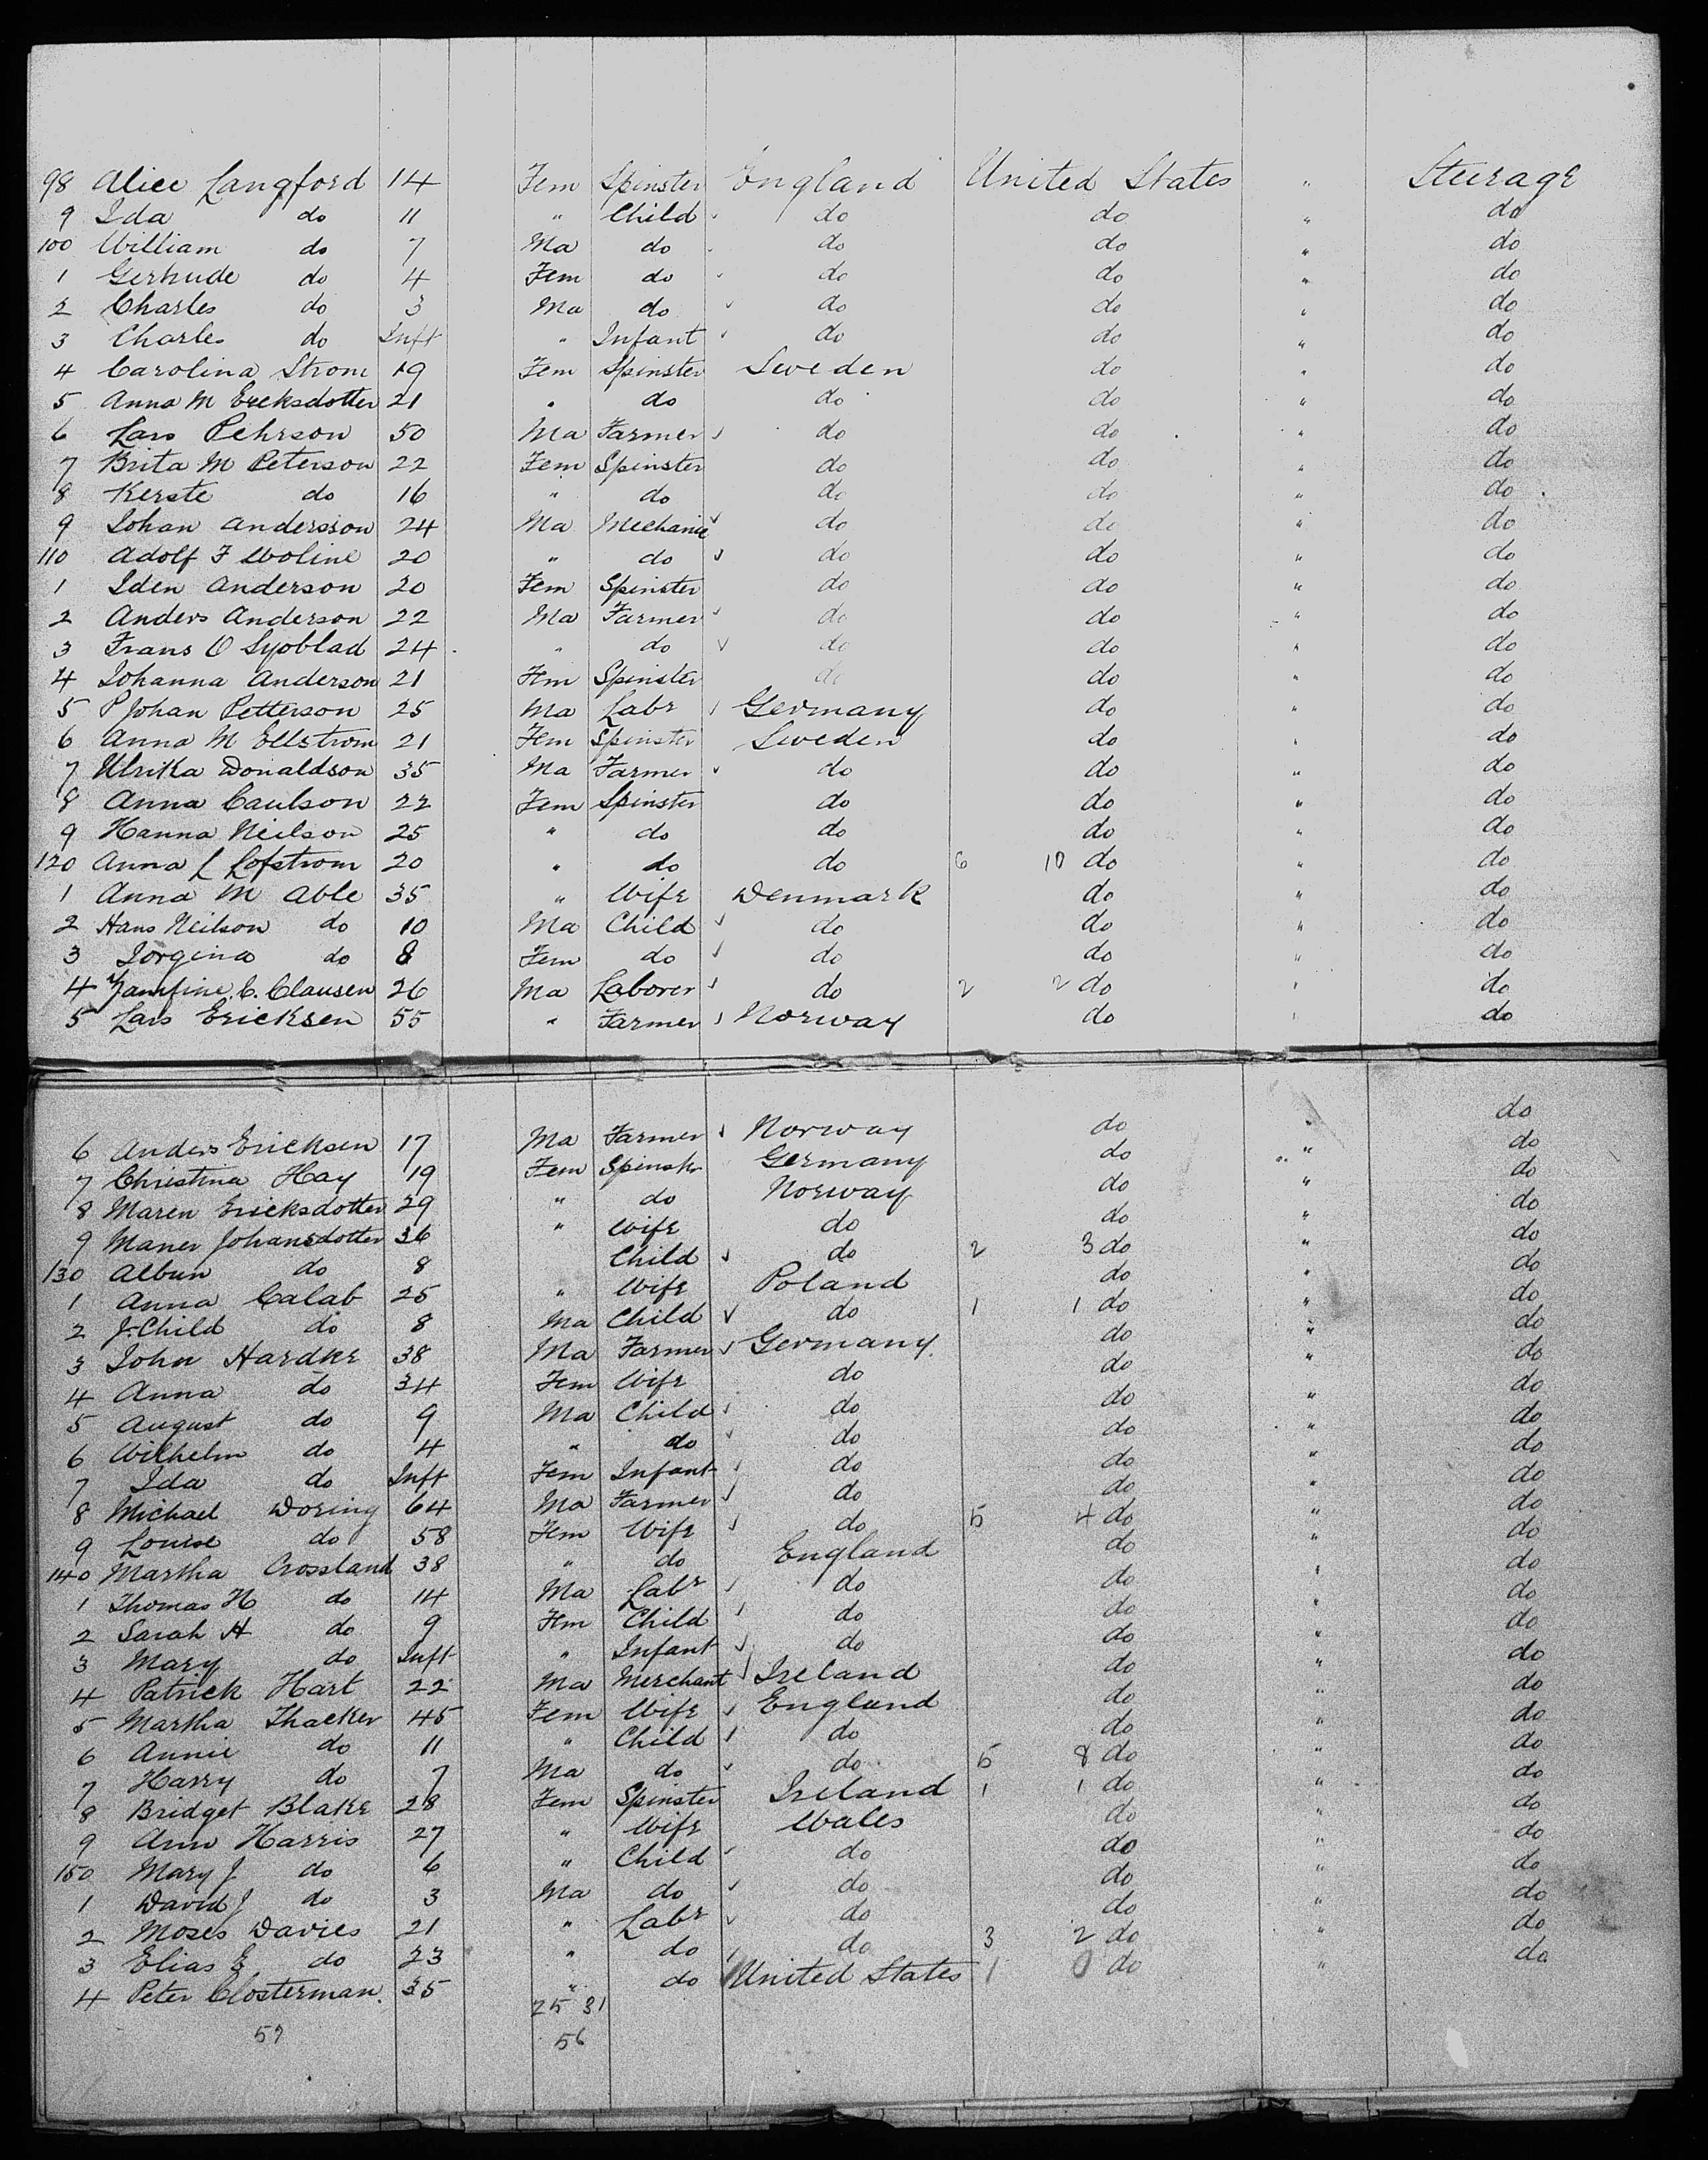 98 Alice Langford 14 Fem Spinster England United States " Steerage
9 Ida do 11 " Child do do " do
100 William do 7 Ma do do do " do
1 Gertrude do 4 Fem do do do " do
2 Charles do 3 Ma do do do " do
3 Charles do Inft " Infant do do " do
4 Carolina Strom 19 Fem Spinster Sweden do " do
5 Anna M Ericksdotter 21 " do do do " do
6 Lars Pehrson 50 Ma Farmer do do " do
7 Brita M Peterson 22 Fem Spinster do do " do
8 Kerste do 16 " do do do " do
9 Johan Andersson 24 Ma Mechanic do do " do
110 Adolf F Woline 20 " do do do " do
1 Iden Anderson 20 Fem Spinster do do " do
2 Anders Anderson 22 Ma Farmer do do " do
3 Frans O Syoblad 24 " do do do " do
4 Johanna Anderson 21 Fem Spinster do do " do
5 P Johan Petterson 25 Ma Labr Germany do " do
6 Anna M Ellstrom 21 Fem Spinster Sweden do " do
7 Ulrika Donaldson 35 Ma Farmer do do " do
8 Anna Caulson 22 Fem Spinster do do " do
9 Hanna Neilson 25 " do do do " do
120 Anna L Lofstrom 20 " do do 6 10 do " do
1 Anna M Able 35 " Wife Denmark do " do
2 Hans Neilson do 10 Ma Child do do " do
3 Jorgina do 8 Fem do do do " do
4 C. Clausen 26 Ma Laborer do 2 2 do " do
5 Lars Ericksen 55 " Farmer Norway do " do
6 Anders Ericksen 17 Ma Farmer Norway do " do
7 Christina Hay 19 Fem Spinstr Germany do " do
8 Maren Ericksdotter 29 " do Norway do " do
9 Maner Johansdotter 36 " Wife do do " do
130 Albun do 8 Child do 2 3 do " do
1 Anna Calab 25 " Wife Poland do " do
2 J. Child do 8 Ma Child do 1 1 do " do
3 John Hardke 38 Ma Farmer Germany do " do
4 Anna do 34 Fem Wife do do " do
5 August do 9 Ma Child do do " do
6 Wilhelm do 4 " do do do " do
7 Ida do Inft Fem Infant do do " do
8 Michael Doring 64 Ma Farmer do do " do
9 Louise do 58 Fem Wife do 5 4 do " do
140 Martha Crossland 38 " do England do " do
1 Thomas H do 14 Ma Labr do do " do
2 Sarah H do 9 Fem Child do do " do
3 Mary do Inft " Infant do do " do
4 Patrick Hart 22 Ma Merchant Ireland do " do
5 Martha Thacker 45 Fem Wife England do " do
6 Annie do 11 " Child do do " do
7 Harry do 7 Ma do do 5 8 do " do
8 Bridget Blake 28 Fem Spinster Ireland 1 1 do " do
9 Ann Harris 27 " Wife Wales do " do
150 Mary J do 6 " Child do do " do
1 David J do 3 Ma do do do " do
2 Moses Davies 21 " Labr do do " do
3 Elias E do 23 " do do 3 2 do " do
4 Peter Closterman. 35 " do United States 1 0 do " do
25 31
57 56